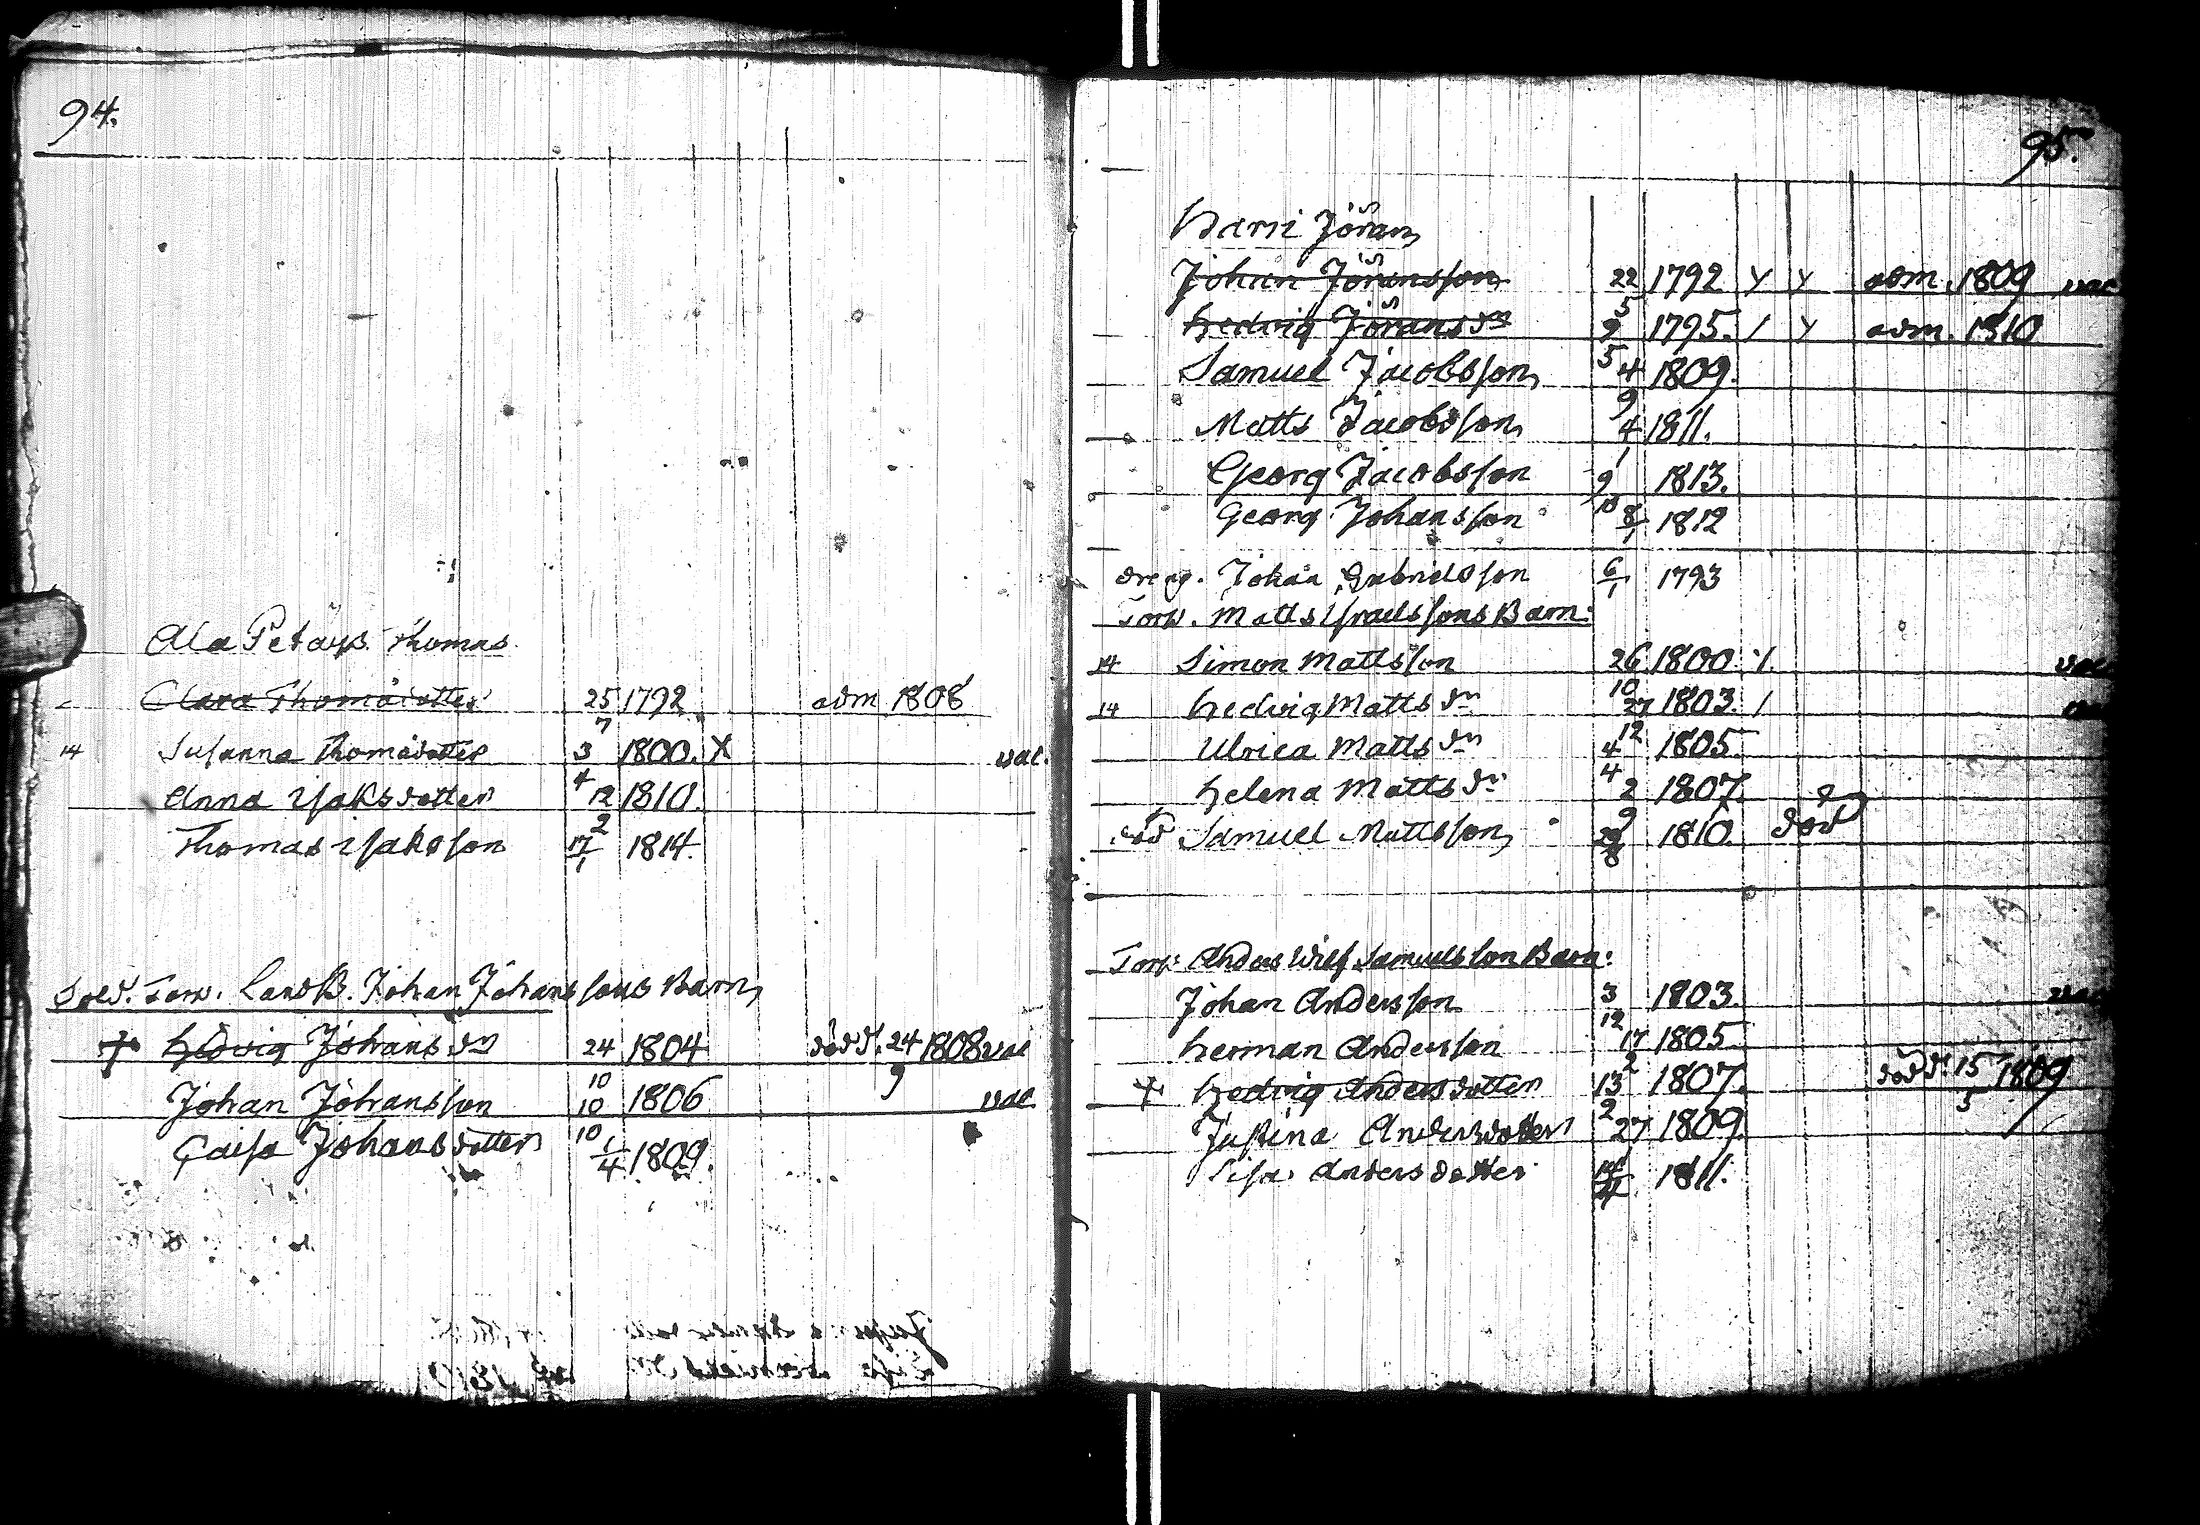 94.
Ala Petays Thomas
Clara Thomædotter 25/7 1792 adm 1808
14 Susanna Thomædotter 3/4 1800. X vac.
Anna Isaksdotter 12/2 1810.
Thomas Isaksson 17/1 1814.
Sold. Torp. Johan Johanssons Barn,
† Hedvig Johans dr 24/10 1804 död d. 24/9 1808 vac
Johan Johansson 10/10 1806 vac
Caisa Johansdotter 1/4 1809.
95.
Harri Jöran,
Johan Jöransson 22/5 1792 Y Y adm. 1809 vac
Hedvig Jörans dr 9/5 1795. / Y adm. 1810
Samuel Jacobsson, 4/9 1809.
Matts Jacobsson, 4/1 1811.
Georg Jacobsson 9/10 1813.
Georg Johansson 8/1 1812
dreng. Johan Gabrielsson 6/1 1793
Torp. Matts Israelssons Barn:
14 Simon Mattsson 26/10 1800. /. vac
14 Hedvig Matts dr 27/12 1803. / vac
Ulrica Matts dr 4/4 1805.
Helena Matts dr 2/9 1807.
död Samuel Mattsson, 29/8 1810. död
Torp: Anders Samuelsson Barn:
Johan Andersson 3/12 1803. vac
Herman Andersson 17/2 1805
† Hedvig Andersdotter 13/2 1807. död d. 15/5 1809
Justina Andersdotter 27 1809.
Lisa Andersdotter 14/4 1811.